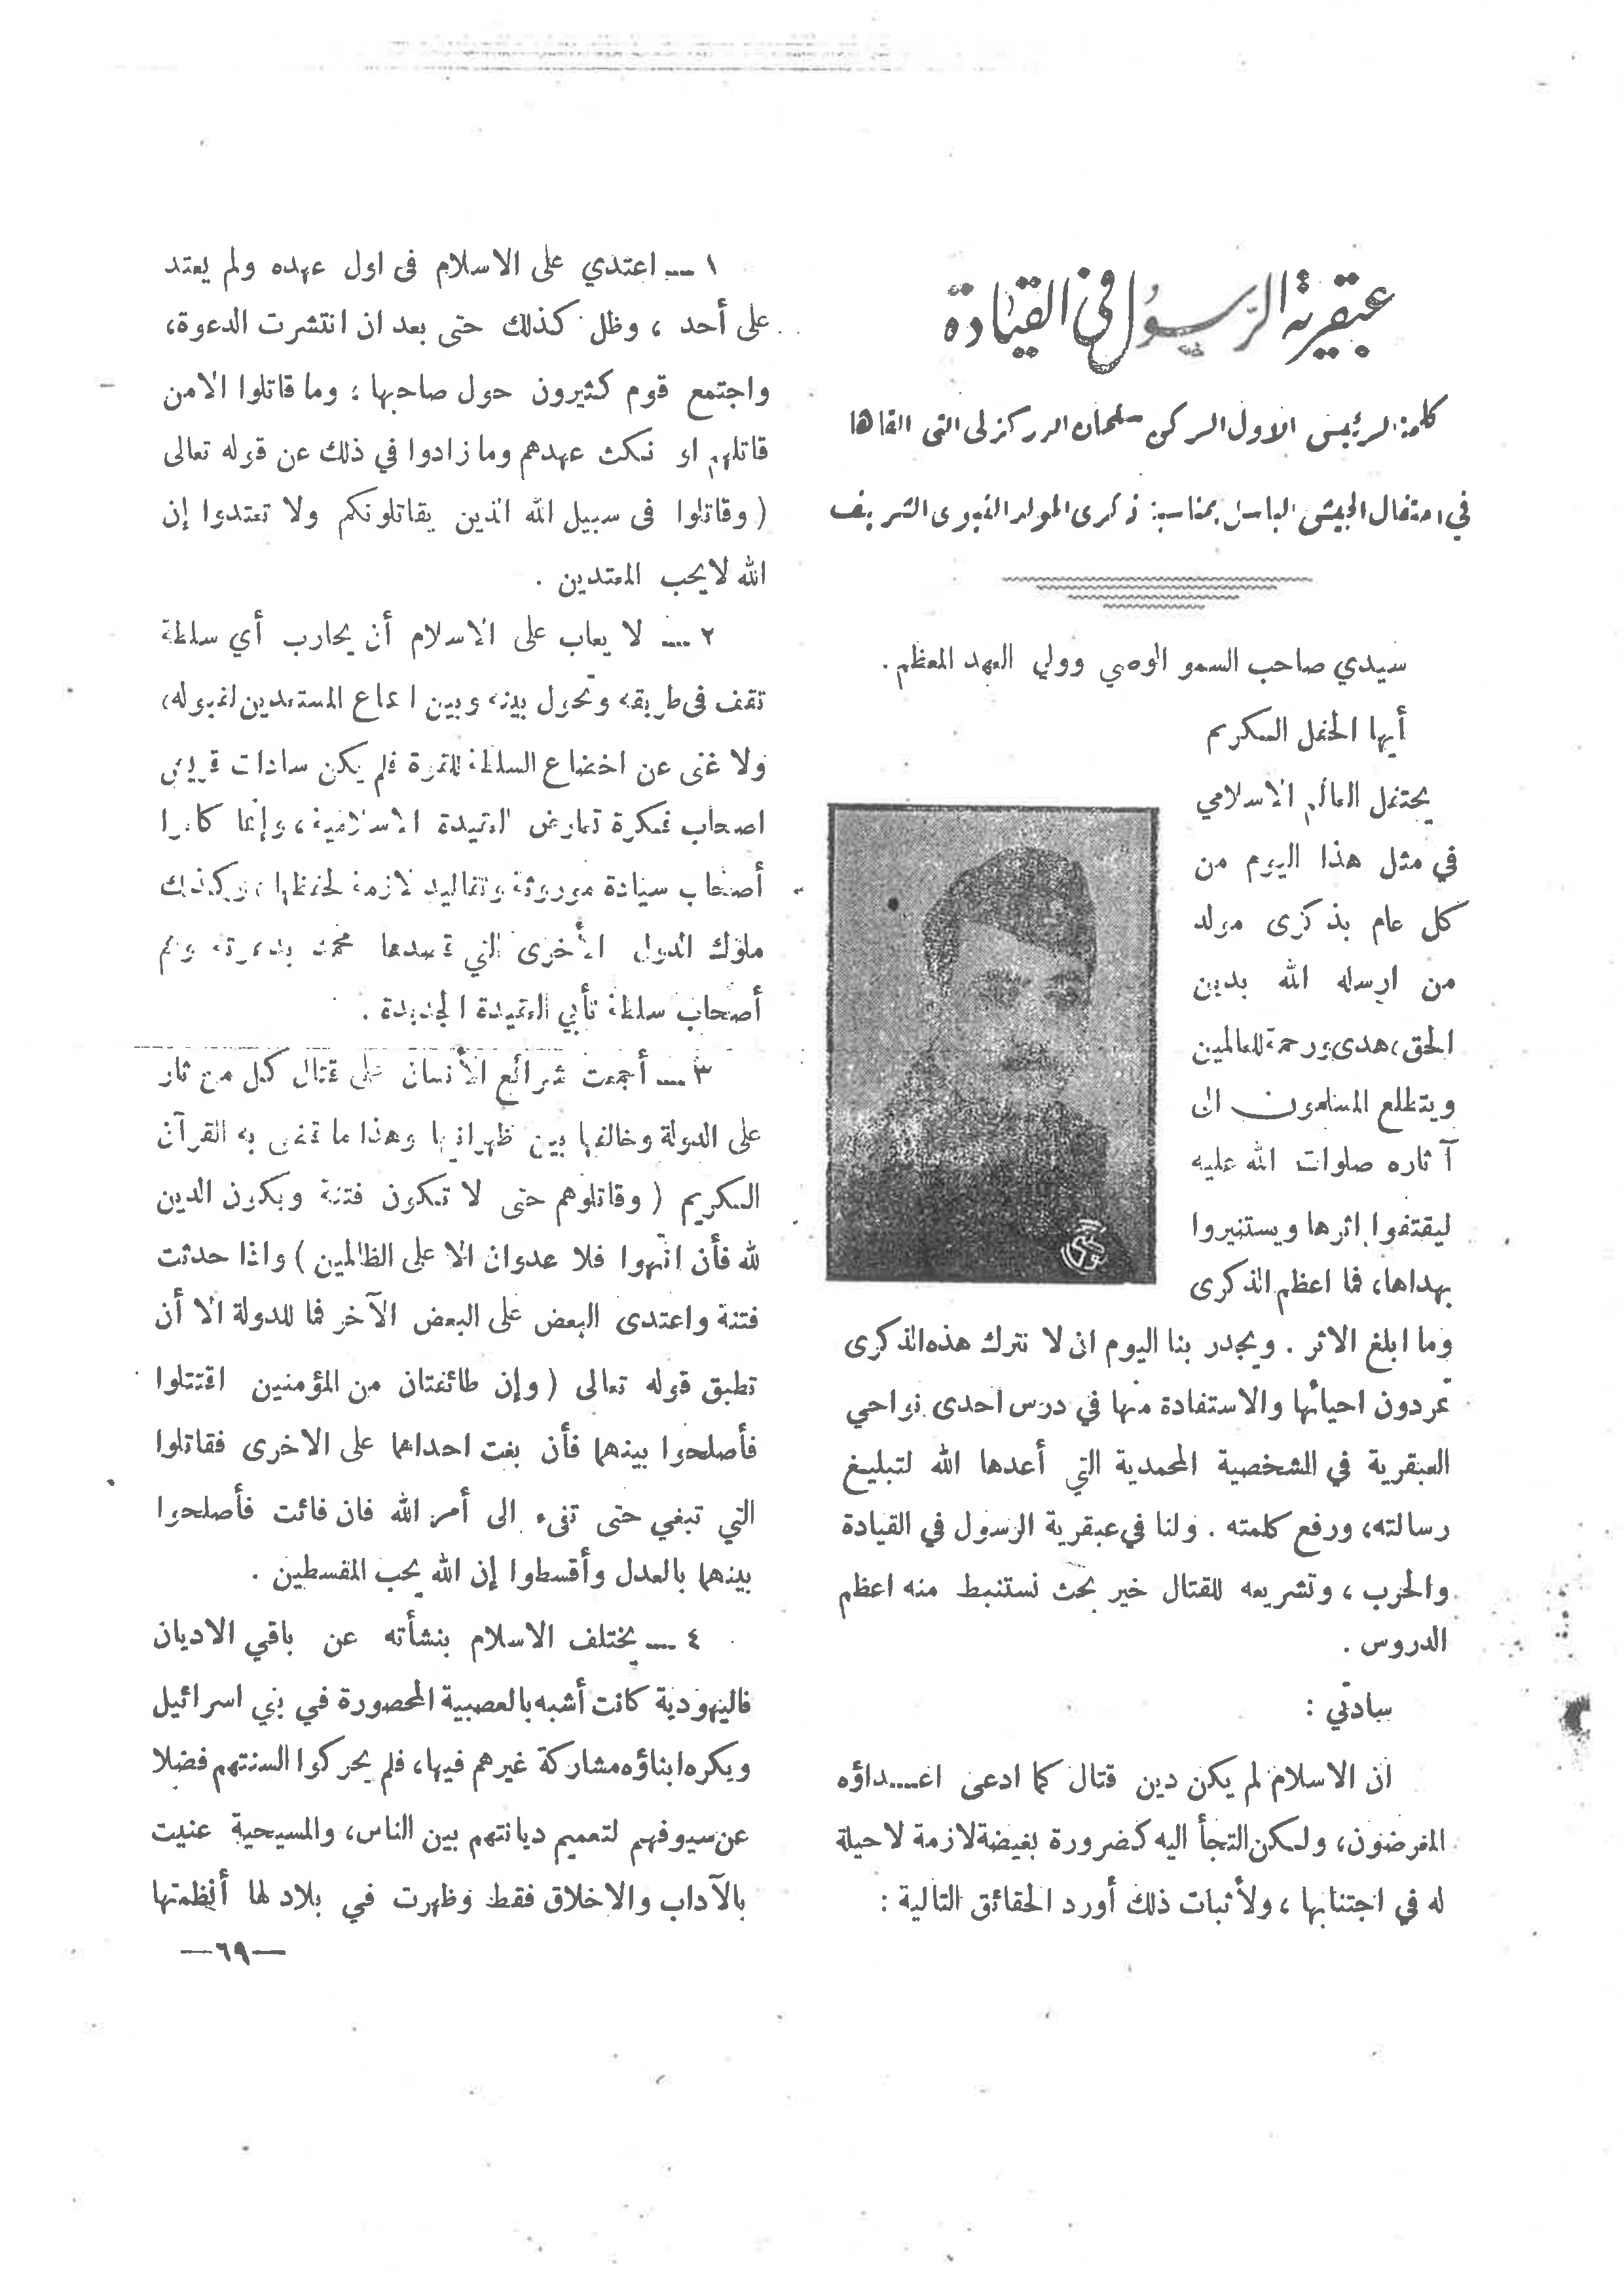 عبقرية الرسول في القيادة
كلمة الرئيس الاول الركن سلمان الدركزلي التي القاها
في احتفال الجيش الباسل بمناسبة ذكرى المولد النبوي الشريف
سيدي صاحب السمو الوصي وولي العهد المعظم .
أيها الحفل الكريم
يحتفل العالم الاسلامي
في مثل هذا اليوم من
كل عام بذكرى مولد
من ارسله الله بدين
الحق، هدى ورحمة للعالمين
ويتطلع المسلمون الى
آثاره صلوات الله عليه
ليقتفوا اثرها ويستنيروا
بهداها، فما اعظم الذكرى
وما ابلغ الاثر . ويجدر بنا اليوم ان لا نترك هذه الذكرى
تمر دون احيائها والاستفادة منها في درس احدى نواحي
العبقرية في الشخصية المحمدية التي أعدها الله لتبليغ
رسالته، ورفع كلمته . ولنا في عبقرية الرسول في القيادة
والحرب ، وتشريعه للقتال خير بحث نستنبط منه اعظم
الدروس .
سادتي :
ان الاسلام لم يكن دين قتال كما ادعى اعــداؤه
المغرضون، ولكن التجأ اليه كضرورة بغيضة لازمة لا حيلة
له في اجتنابها ، ولأثبات ذلك أورد الحقائق التالية :
١ — اعتدي على الاسلام في اول عهده ولم يعتد
على أحد ، وظل كذلك حتى بعد ان انتشرت الدعوة،
واجتمع قوم كثيرون حول صاحبها ؛ وما قاتلوا الا من
قاتلهم او نكث عهدهم وما زادوا في ذلك عن قوله تعالى
( وقاتلوا في سبيل الله الذين يقاتلونكم ولا تعتدوا إن
الله لا يحب المعتدين .
٢ — لا يعاب على الاسلام أن يحارب أي سلطة
تقف في طريقه وتحول بينه وبين اسماع المستعدين لقبوله،
ولا غنى عن اخضاع السلطة للقوة فلم يكن سادات قريش
اصحاب فكرة تعارض العقيدة الاسلامية، وإنما كانوا
أصحاب سيادة موروثة وتقاليد لازمة لحفظها ، وكذلك
ملوك الدول الأخرى التي قصدها محمد بدعوته وهم
أصحاب سلطة تأبى العقيدة الجديدة .
٣ — أجمعت شرائع الأنسان على قتال كل من ثار
على الدولة وخالفها بين ظهرانيها وهذا ما قضى به القرآن
الكريم ( وقاتلوهم حتى لا تكون فتنة ويكون الدين
لله فأن انتهوا فلا عدوان الا على الظالمين ) واذا حدثت
فتنة واعتدى البعض على البعض الآخر فما للدولة الا أن
تطبق قوله تعالى ( وإن طائفتان من المؤمنين اقتتلوا
فأصلحوا بينهما فأن بغت احداهما على الاخرى فقاتلوا
التي تبغي حتى تفىء الى أمر الله فان فائت فأصلحوا
بينهما بالعدل وأقسطوا إن الله يحب المقسطين .
٤ — يختلف الاسلام بنشأته عن باقي الاديان
فاليهودية كانت أشبه بالعصبية المحصورة في بني اسرائيل
ويكره ابناؤه مشاركة غيرهم فيها، فلم يحركوا السنتهم فضلا
عن سيوفهم لتعميم ديانتهم بين الناس، والمسيحية عنيت
بالآداب والاخلاق فقط وظهرت في بلاد لها أنظمتها
—٦٩—